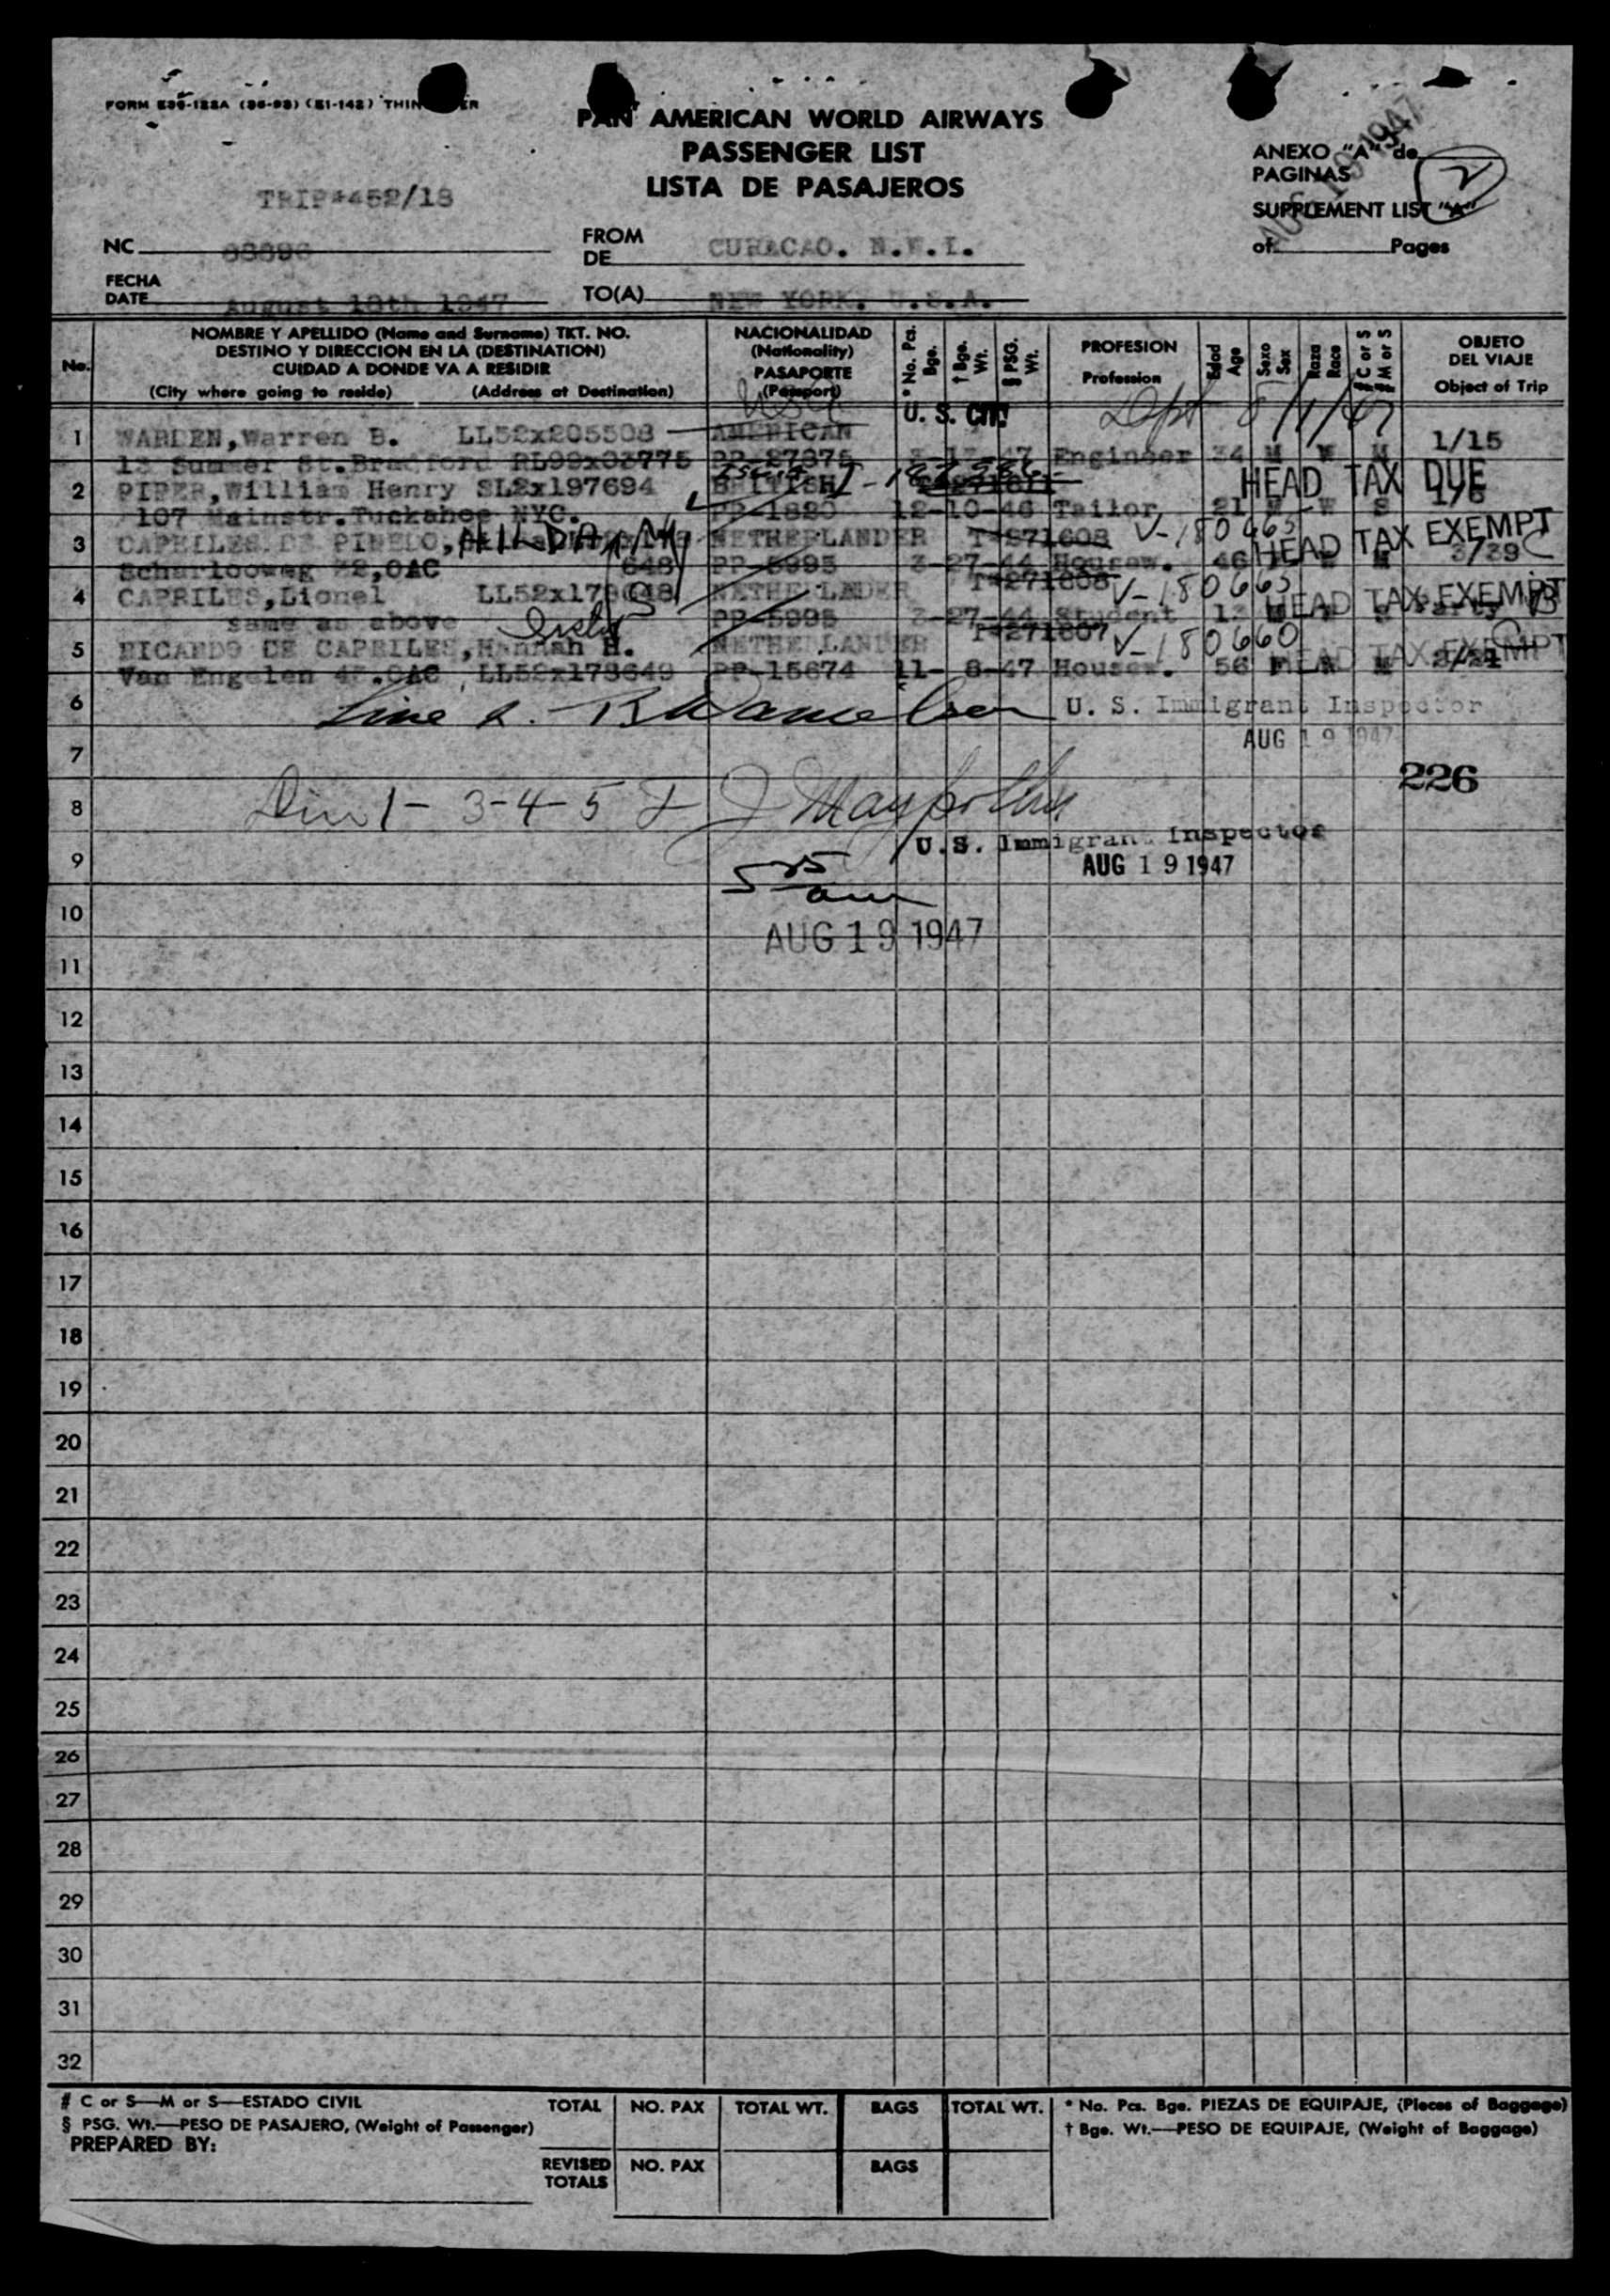 FORM
PAN AMERICAN WORLD AIRWAYS
PASSENGER LIST
LISTA DE PASAJEROS
ANEXO "A" de
PAGINAS
2
SUPPLEMENT LIST "A"
of Pages
AUG 19 1947
TRIP#452/18
NC
FROM
DE CURACAO. N.W.I.
FECHA
DATE August 18th 1947
TO(A) NEW YORK. U.S.A.
No.
NOMBRE Y APELLIDO (Name and Surname) TKT. NO.
DESTINO Y DIRECCION EN LA (DESTINATION)
CUIDAD A DONDE VA A RESIDIR
(City where going to reside) (Address at Destination)
NACIONALIDAD
(Nationality)
PASAPORTE
(Passport)
* No. Pcs. Bge.
† Bge. Wt.
§ PSG. Wt.
PROFESION
Profession
Edad
Age
Sexo
Sex
Raza
Race
# C or S
# M or S
OBJETO
DEL VIAJE
Object of Trip
U. S. CIT.
1 WARDEN,Warren B. LL52x205508 AMERICAN 1/15
13 Summer St.Bradford RL99x03775 PP-27875 3-13-47 Engineer 34 M W M
HEAD TAX DUE
2 PIPER,William Henry SL2x197694 BRITISH 1/6
107 Mainstr.Tuckahoe NYC. PP-1820 12-10-46 Tailor 21 M W S
3 CAPRILES DE PINEDO, HILDA M NETHERLANDER T-271608 V-180663 HEAD TAX EXEMPT
Scharlooweg 648 PP-5995 3-27-44 Housew. 46 M 3/39
4 CAPRILES,Lionel LL52x178648 NETHERLANDER T-271608 V-180663 HEAD TAX EXEMPT
same as above PP-5995 3-27-44 Student 13 M W S
5 RICARDO DE CAPRILES,Hannah H. NETHERLANDER T-271607 V-180660 HEAD TAX EXEMPT
Van Engelen 45.OAC LL52x178649 PP-15674 11- 8-47 Housew. 56 F W M
6 U. S. Immigrant Inspector
AUG 19 1947
7
226
8 1-3-4-5
U.S. Immigrant Inspector
9 AUG 19 1947
5 25
am
10
AUG 19 1947
11
12
13
14
15
16
17
18
19
20
21
22
23
24
25
26
27
28
29
30
31
32
# C or S—M or S—ESTADO CIVIL
§ PSG. Wt.—PESO DE PASAJERO, (Weight of Passenger)
PREPARED BY:
TOTAL NO. PAX TOTAL WT. BAGS TOTAL WT.
REVISED
TOTALS NO. PAX BAGS
* No. Pcs. Bge. PIEZAS DE EQUIPAJE, (Pieces of Baggage)
† Bge. Wt.—PESO DE EQUIPAJE, (Weight of Baggage)